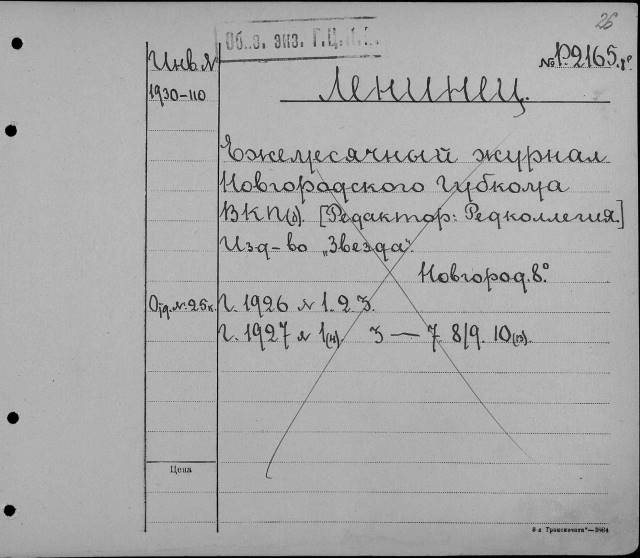 26
Об. экз. Г.Ц.К.П.
Инв. №
№Р.2165.8°
1930-110
Ленинец.
Ежемесячный журнал
Новгородского Губкома
ВКП(б). [Редактор: Редколлегия]
Изд-во „Звезда".
Новгород. 8°
Отд. №. 25 к.
Г. 1926 № 1. 2 3.
Г. 1927 № 1(4). 3 — 7. 8/9. 10(13).
Цена